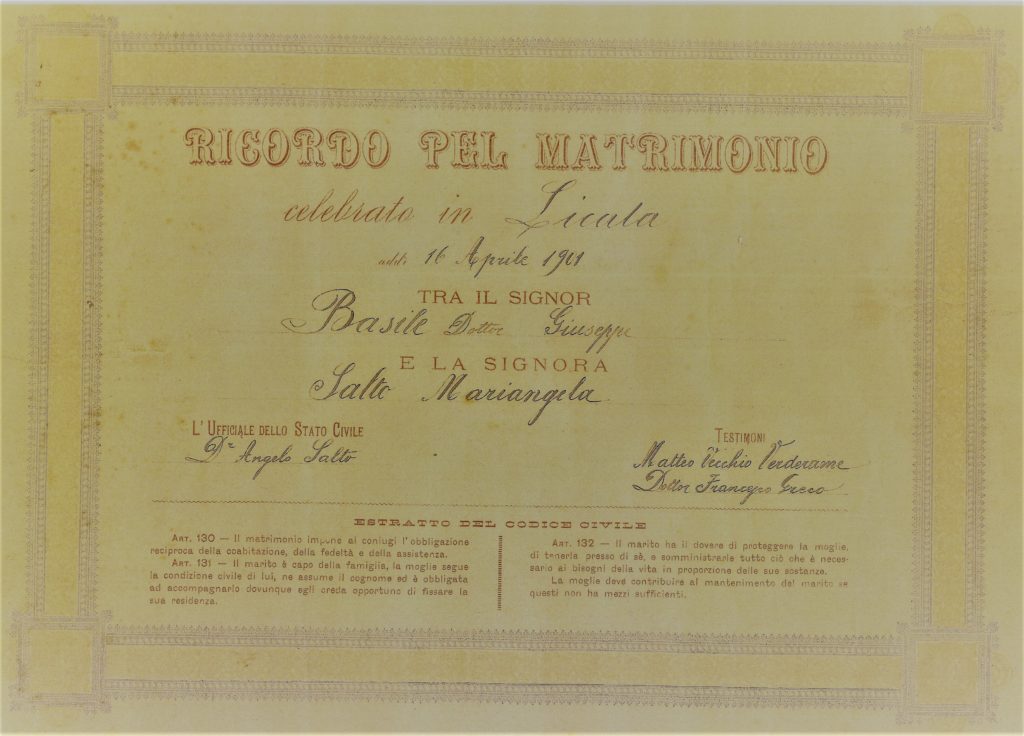 RICORDO PEL MATRIMONIO
celebrato in Licata
addì 16 Aprile 1901
TRA IL SIGNOR
Basile Dottor Giuseppe
E LA SIGNORA
Salto Mariangela
L'UFFICIALE DELLO STATO CIVILE
Dr Angelo Salto
TESTIMONI
Matteo Vecchio Verderame
Dottor Francesco Greco
ESTRATTO DEL CODICE CIVILE
ART. 130 — Il matrimonio impone ai coniugi l'obbligazione
reciproca della coabitazione, della fedeltà e della assistenza.
ART. 131 — Il marito è capo della famiglia, la moglie segue
la condizione civile di lui, ne assume il cognome ed è obbligata
ad accompagnarlo dovunque egli creda opportuno di fissare la
sua residenza.
ART. 132 — Il marito ha il dovere di proteggere la moglie,
di tenerla presso di sè, e somministrarle tutto ciò che è neces-
sario ai bisogni della vita in proporzione delle sue sostanze.
La moglie deve contribuire al mantenimento del marito se
questi non ha mezzi sufficienti.